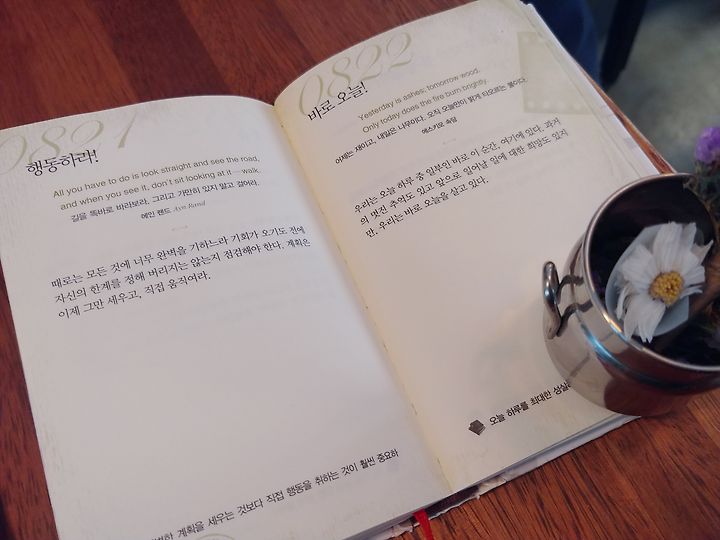 0821
행동하라!
All you have to do is look straight and see the road,
and when you see it, don't sit looking at it—walk.
길을 똑바로 바라보라. 그리고 가만히 있지 말고 걸어라.
에인 랜드 Ayn Rand
때로는 모든 것에 너무 완벽을 기하느라 기회가 오기도 전에
자신의 한계를 정해 버리지는 않는지 점검해야 한다. 계획은
이제 그만 세우고, 직접 움직여라.
계획을 세우는 것보다 직접 행동을 취하는 것이 훨씬 중요하
0822
바로 오늘!
Yesterday is ashes; tomorrow wood.
Only today does the fire burn brightly.
어제는 재이고, 내일은 나무이다. 오직 오늘만이 밝게 타오르는 불이다.
에스키모 속담
우리는 오늘 하루 중 일부인 바로 이 순간, 여기에 있다. 과거
의 멋진 추억도 있고 앞으로 일어날 일에 대한 희망도 있지
만, 우리는 바로 오늘을 살고 있다.
오늘 하루를 최대한 성실